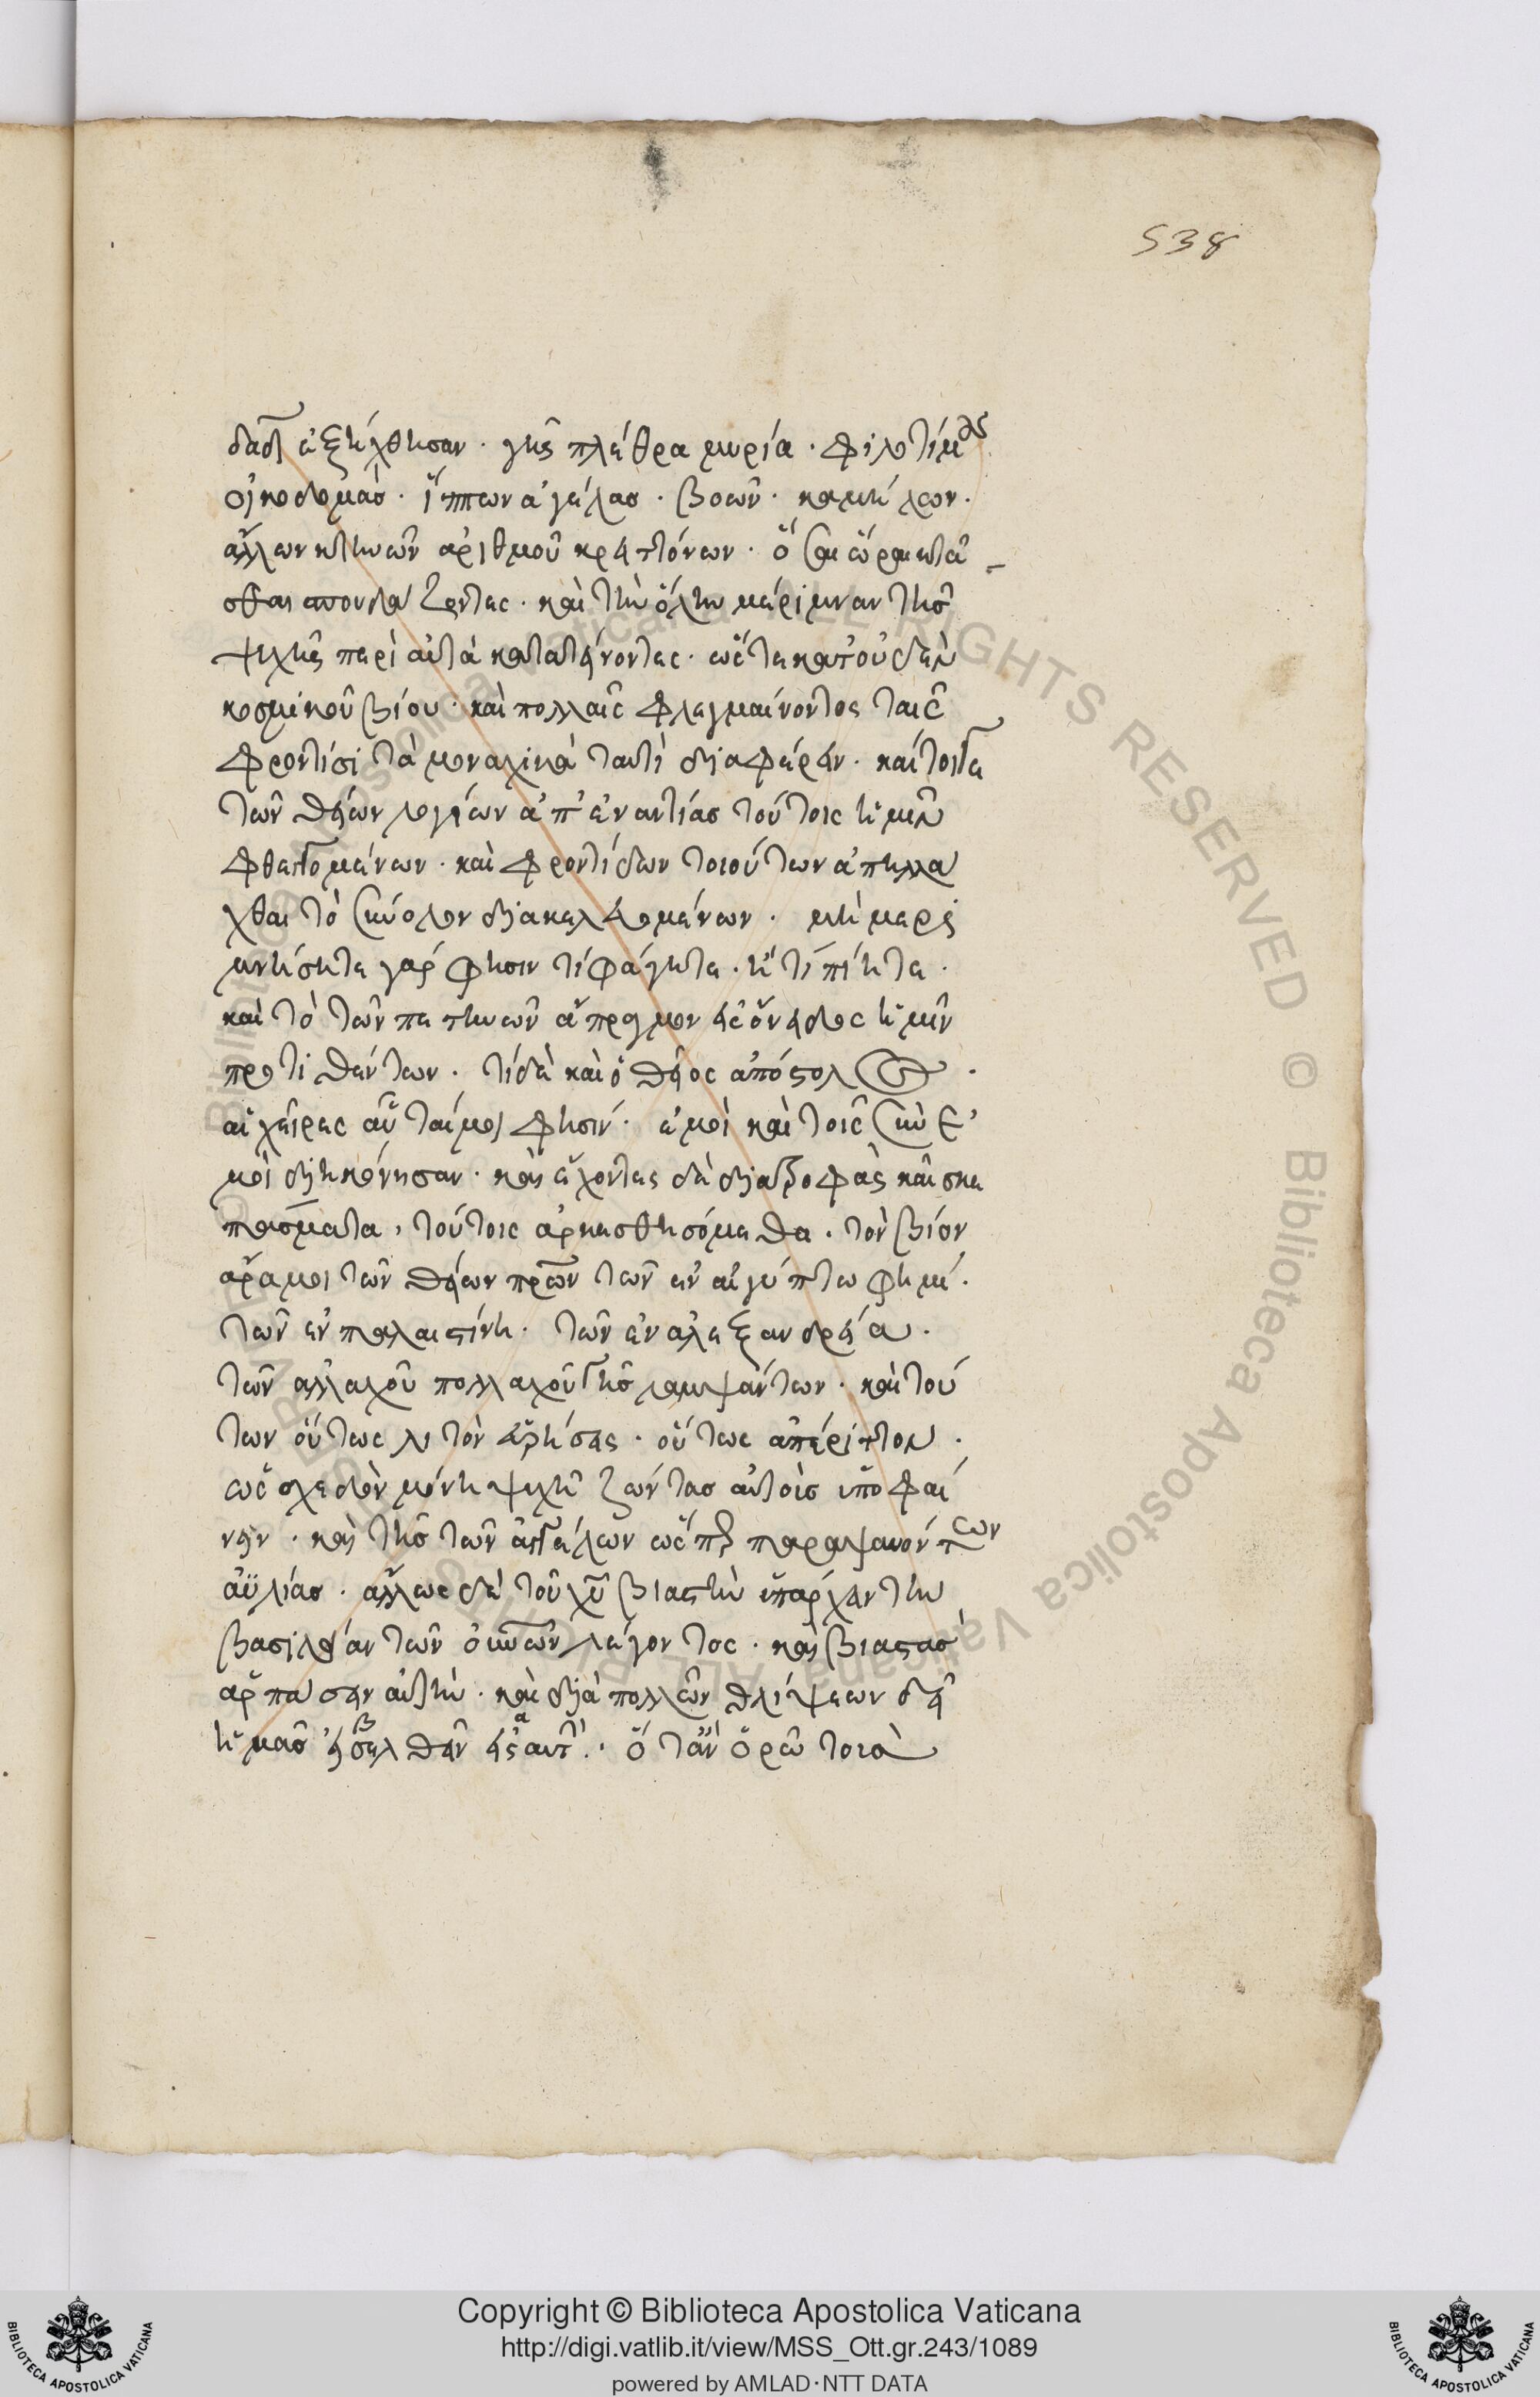 538
δαδ ἐξήχθησαν · γῆς πλέθρα μυρία · φιλοτίμους
οἰκοδομὰς · ἵππων ἀγέλας · βοῶν · καμήλων ·
ἄλλων κτηνῶν ἀριθμοῦ κρειττόνων · ὅσαι ὧραι κτᾶ
σθαι σπουδάζοντες · καὶ τὴν ὅλην μέριμναν τῆς
ψυχῆς περὶ αὐτὰ κατατείνοντες · ὥστε κατ' οὐδὲν
κοσμικοῦ βίου · καὶ πολλαῖς φλεγμαίνοντος ταῖς
φροντίσι τὰ μοναχικὰ ταυτὶ διαφέρειν · καί τοιγε
τῶν θείων λογίων ἀπ' ἐναντίας τούτοις ἡμῖν
φθεγγομένων · καὶ φροντίδων τοιούτων ἀπηλλά
χθαι τὸ σύνολον διακελευομένων · μὴ μερι
μνήσητε γάρ φησιν τί φάγητε · ἢ τί πίητε ·
καὶ τὸ τῶν πετηνῶν ἄπραγμον εἰς ὄνειδος ἡμῖν
προτιθέντων · τί δὲ καὶ ὁ θεῖος ἀπόστολος ·
αἱ χεῖρες αὗταί μοι φησίν · ἐμοὶ καὶ τοῖς σὺν ἐ
μοὶ διηκόνησαν · καὶ ἔχοντες δὲ διατροφὰς καὶ σκε
πάσματα, τούτοις ἀρκεσθησόμεθα · τὸν βίον
ἄρα μοι τῶν θείων πρων τῶν ἐν αἰγύπτω φημί ·
τῶν ἐν παλαιστίνη · τῶν ἐν ἀλεξανδρεία ·
τῶν ἀλλαχοῦ πολλαχοῦ γῆς λαμψάντων · καὶ τού
των οὕτως λιτὸν εὑρήσεις · οὕτως ἀπέριττον ·
ὡς σχεδὸν μόνη ψυχῆ ζῶντας αὐτοὺς ὑποφαί
νειν · καὶ τῆς τῶν ἀγγέλων ὥσπερ παραψαυόντων
ἀϋλίας · ἄλλως δὲ τοῦ χῦ βιαστὴν ὑπάρχειν τὴν
βασιλείαν τῶν οὐνῶν λέγοντος · καὶ βιαστὰς
ἁρπάσειν αὐτήν · καὶ διὰ πολλῶν θλίψεων δεῖ
ἡμᾶς εἰσελθεῖν εἰς αὐτήν · ὅταν ὁρῶ τοιαῦ
Copyright © Biblioteca Apostolica Vaticana
http://digi.vatlib.it/view/MSS_Ott.gr.243/1089
powered by AMLAD·NTT DATA
BIBLIOTECA APOSTOLICA VATICANA
BIBLIOTECA APOSTOLICA VATICANA